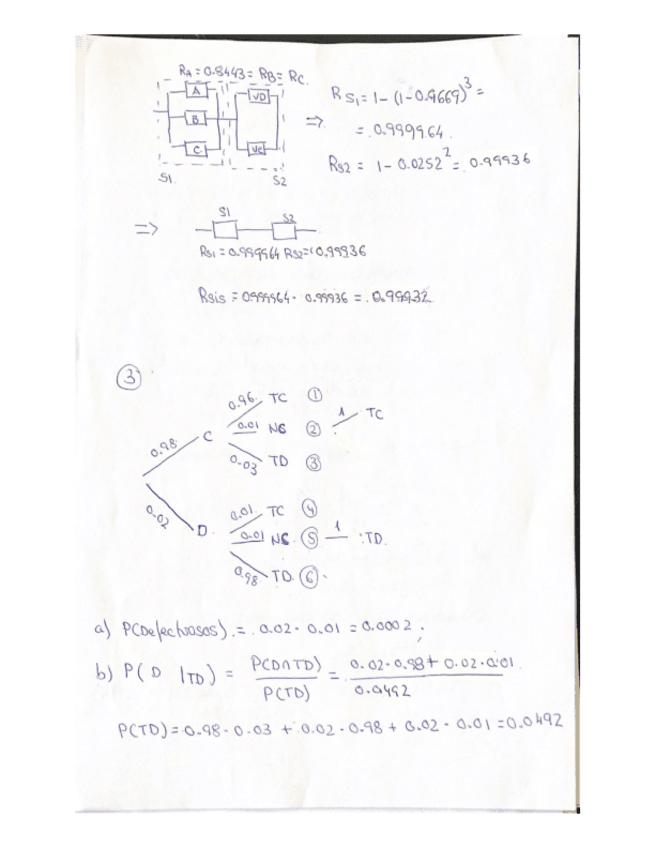 RA = 0.8443 = RB = RC.
A
B
C
VD
VC
S1.
S2
⇒
R S1 = 1 - (1 - 0.9669)^3 =
= 0.999964.
RS2 = 1 - 0.0252^2 = 0.99936
⇒
S1 S2
RS1 = 0.999964 RS2 = 0.99936
Rsis = 0.999964 · 0.99936 = 0.99932
③
0.96. TC ①
0.98 C 0.01 NC ② 1 TC
0.03 TD ③
0.01. TC ④
0.02 D. 0.01 NC. ⑤ 1 TD.
0.98 TD. ⑥
a) P(Defectuosos) = 0.02 · 0.01 = 0.0002;
b) P(D | TD) = P(D∩TD) / P(TD) = 0.02 · 0.98 + 0.02 · 0.01 / 0.0492
P(TD) = 0.98 · 0.03 + 0.02 · 0.98 + 0.02 · 0.01 = 0.0492